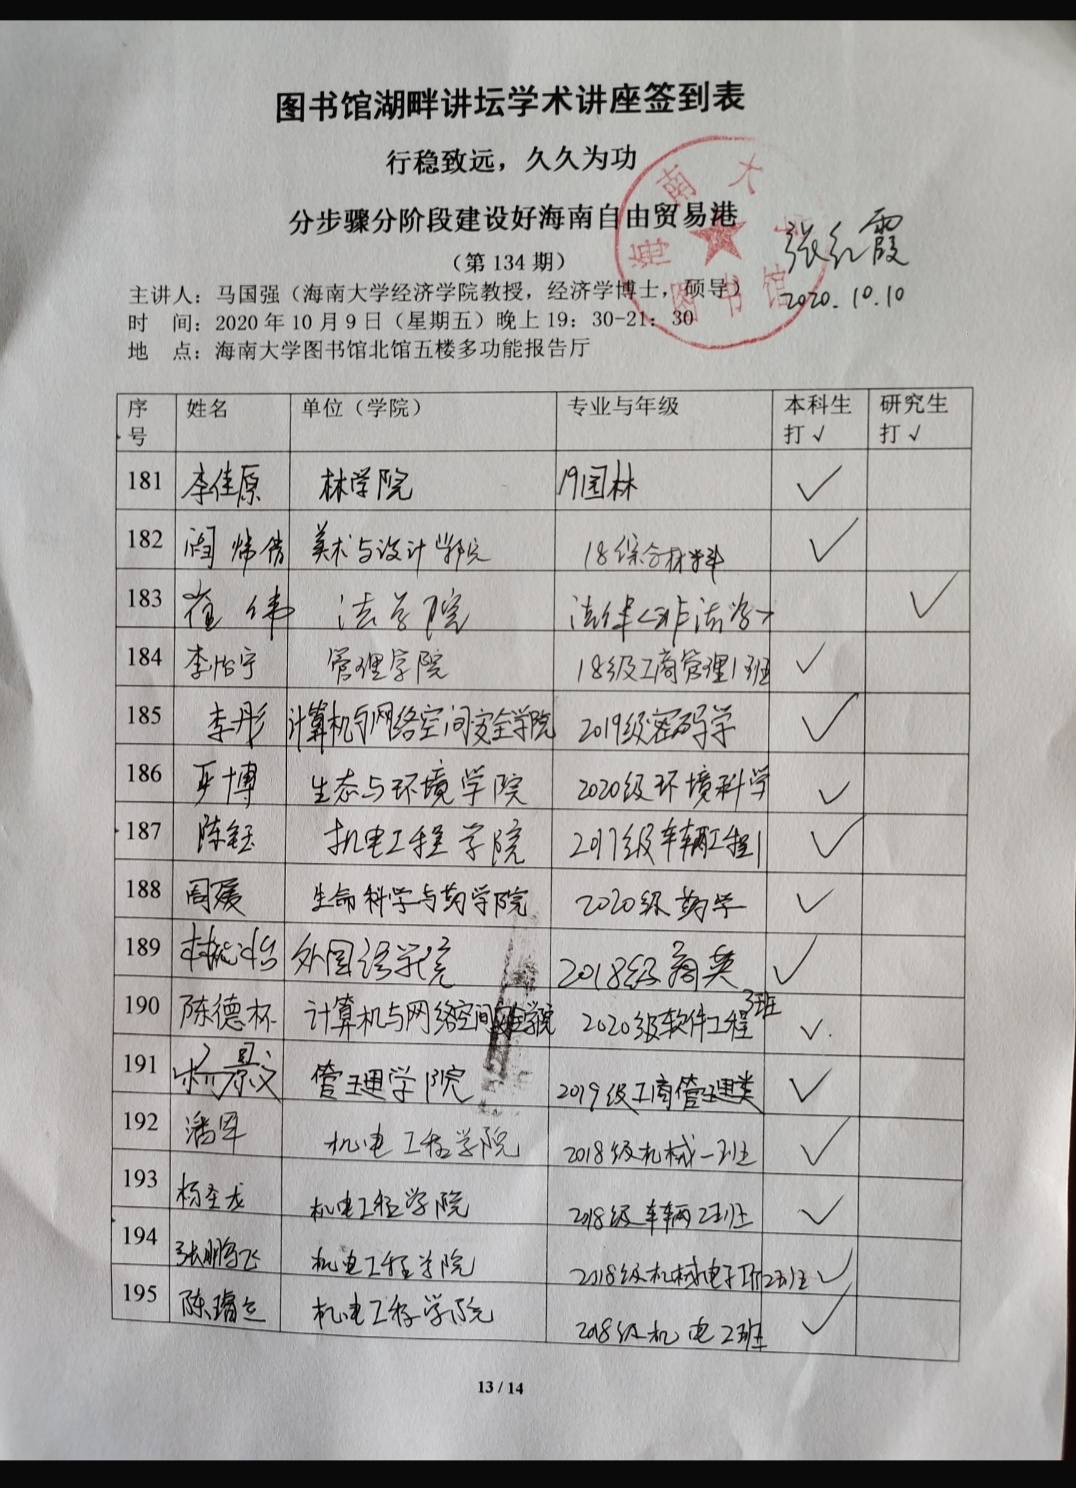 图书馆湖畔讲坛学术讲座签到表
行稳致远，久久为功
分步骤分阶段建设好海南自由贸易港
（第 134 期）
海南大学
图书馆
张红霞
2020.10.10
主讲人：马国强（海南大学经济学院教授，经济学博士，硕导）
时　间：2020 年 10 月 9 日（星期五）晚上 19：30-21：30
地　点：海南大学图书馆北馆五楼多功能报告厅
序号 姓名 单位（学院） 专业与年级 本科生打√ 研究生打√
181 李佳原 林学院 19园林 ✓
182 阎炜倩 美术与设计学院 18综合材料 ✓
183 崔伟 法学院 法律<非法学> ✓
184 李怡宁 管理学院 18级工商管理1班 ✓
185 李彤 计算机与网络空间安全学院 2019级密码学 ✓
186 博 生态与环境学院 2020级环境科学 ✓
187 陈钰 机电工程学院 2017级车辆工程1 ✓
188 周媛 生命科学与药学院 2020级药学 ✓
189 外国语学院 2018级商英 ✓
190 陈德杯 计算机与网络空间安全学院 2020级软件工程3班 ✓
191 管理学院 2019级工商管理类 ✓
192 潘军 机电工程学院 2018级机械一班 ✓
193 杨圣龙 机电工程学院 2018级车辆2班 ✓
194 张鹏飞 机电工程学院 2018级机械电子工程2班 ✓
195 陈 机电工程学院 2018级机电2班 ✓
13 / 14